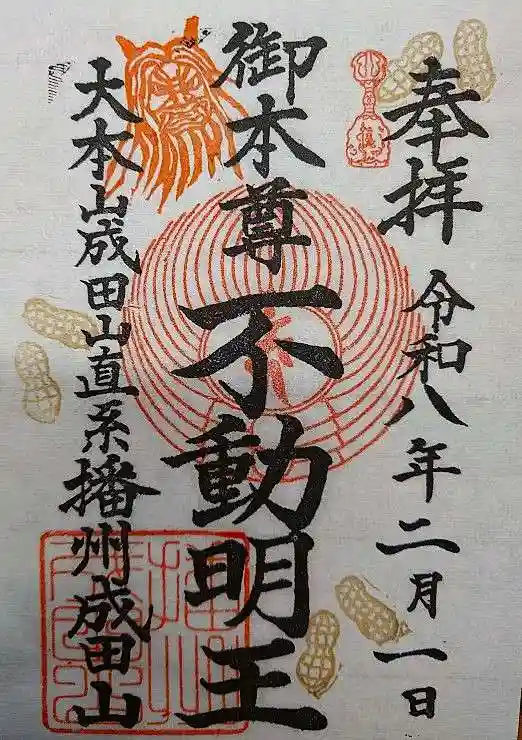 奉拝
令和八年二月一日
御本尊
不動明王
大本山成田山直系播州成田山